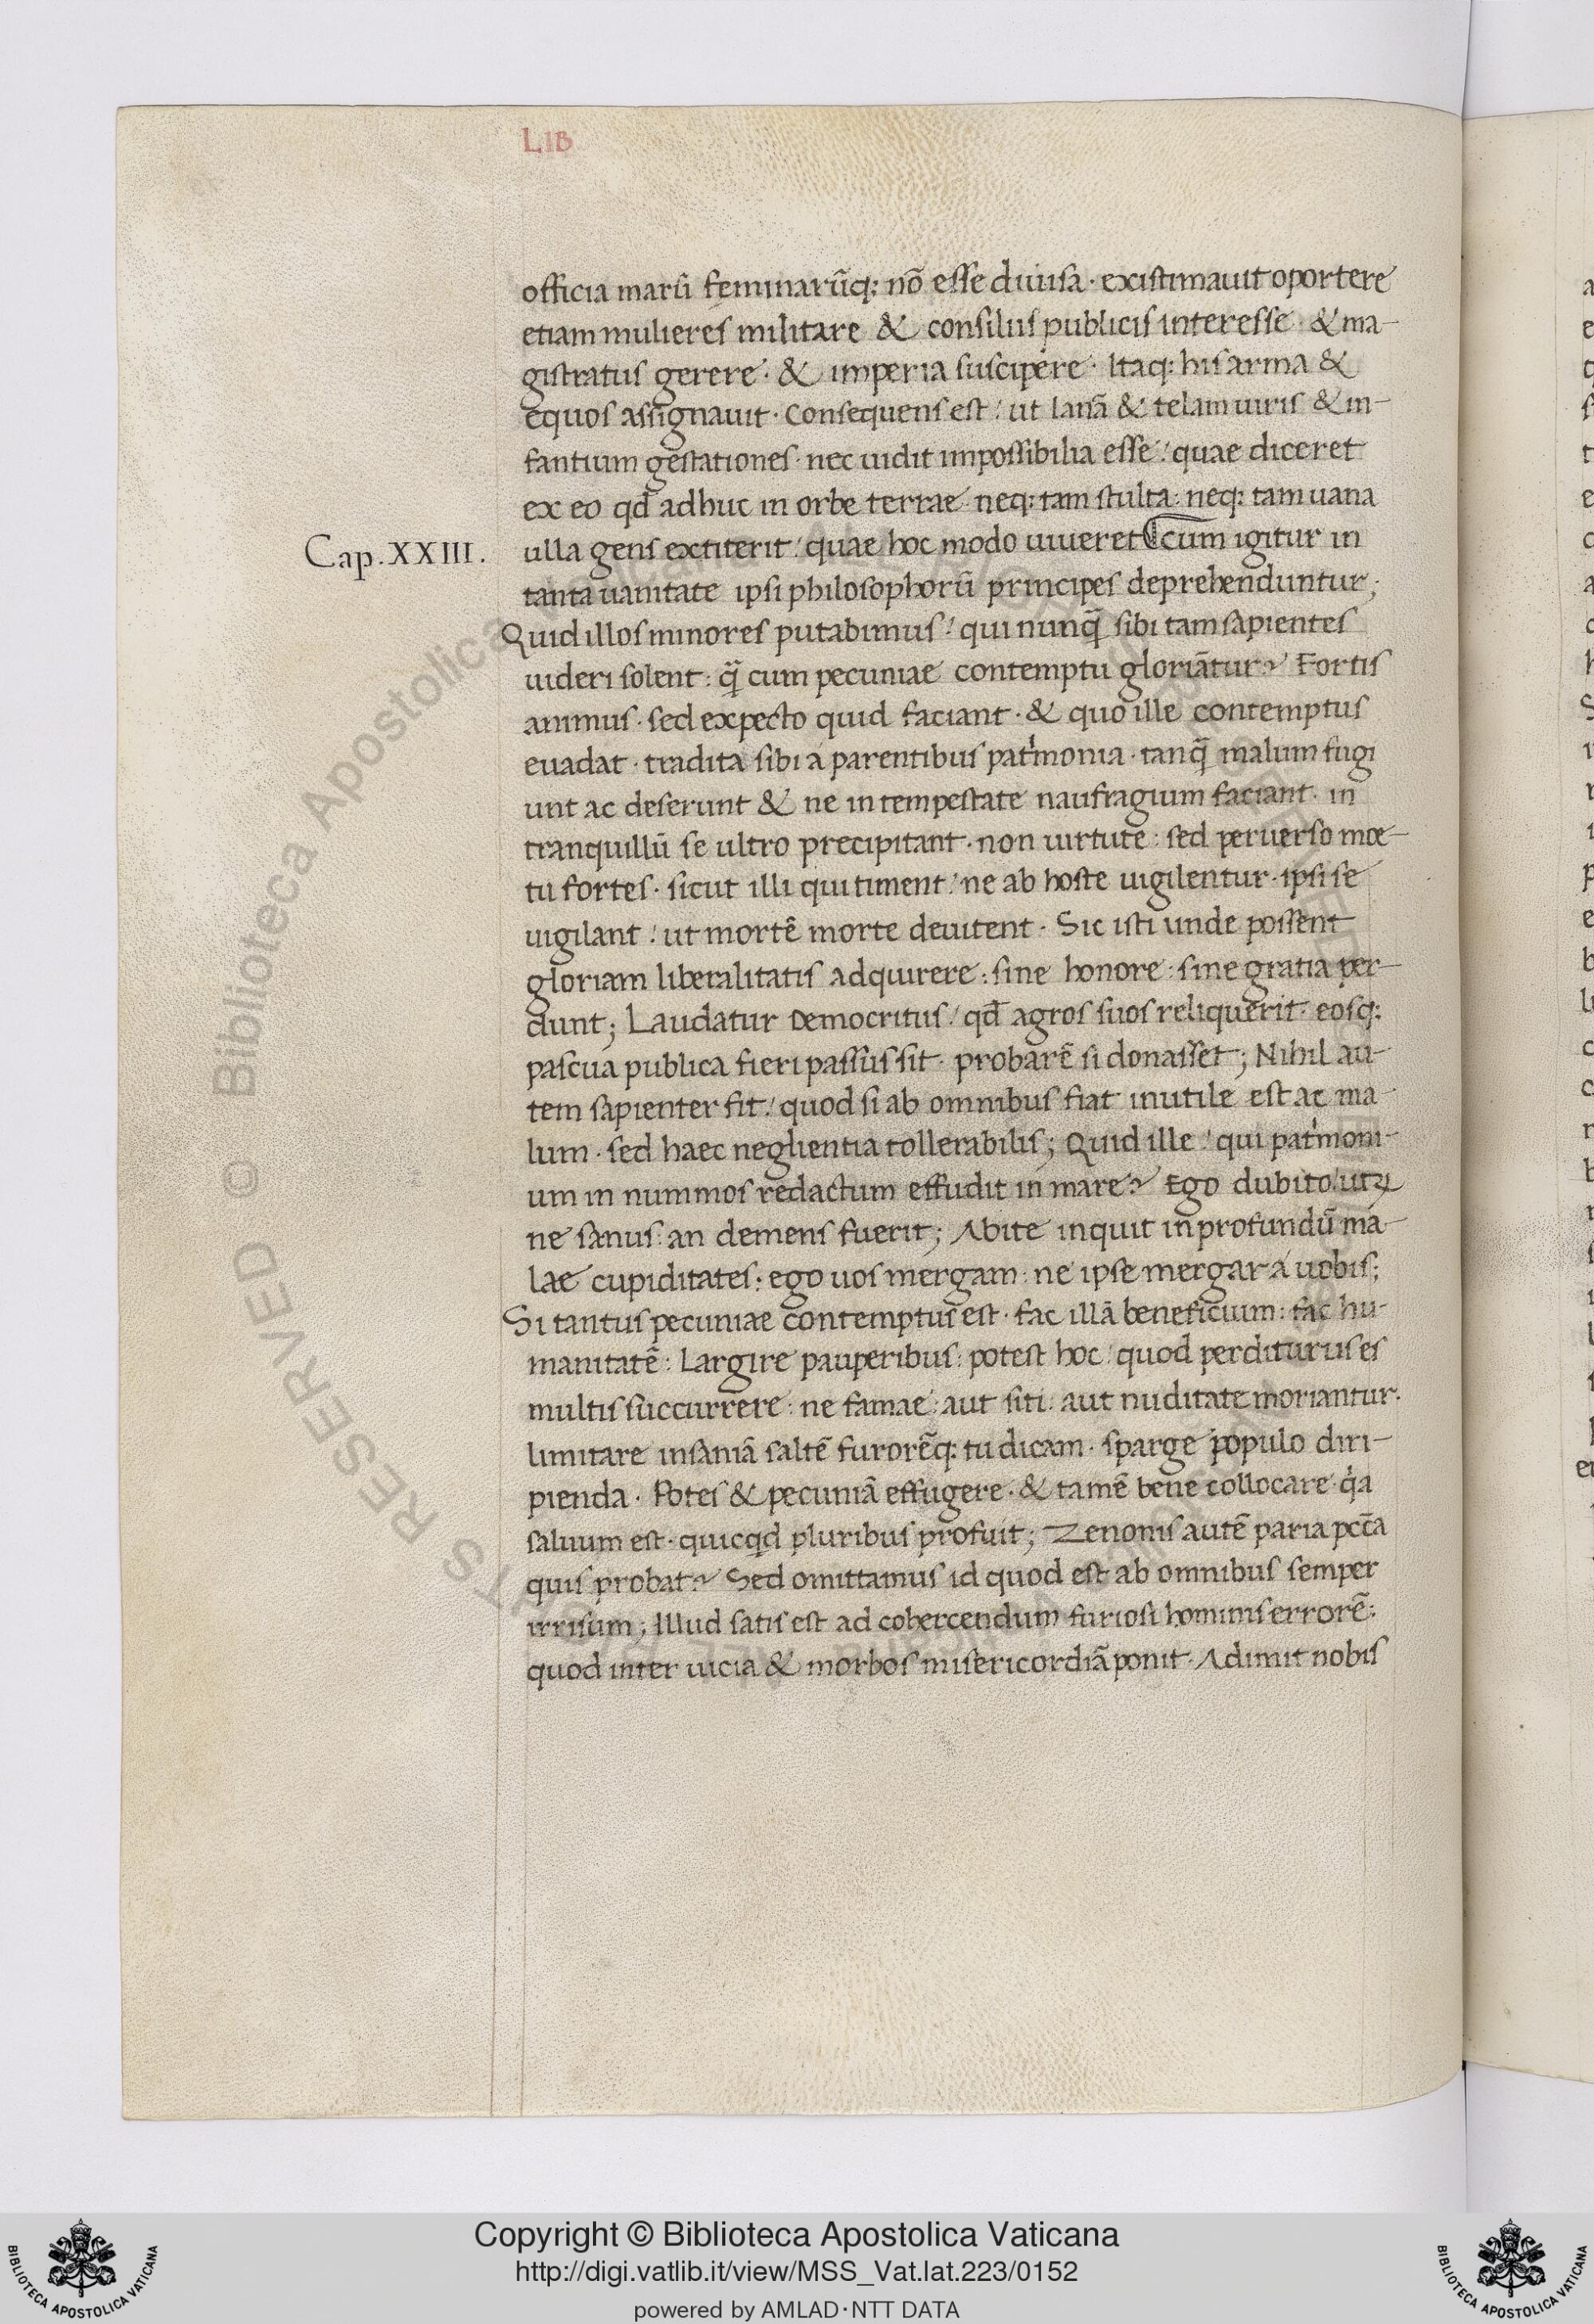 LIB
officia marū feminarūq; nō esse diuisa · existimauit oportere
etiam mulieres militare & consiliis publicis interesse · & ma-
gistratus gerere · & imperia suscipere · Itaq; his arma &
equos assignauit · Consequens est / ut lanā & telam uiris & in-
fantium gestationes · nec uidit impossibilia esse / quae diceret
ex eo qd̄ adhuc in orbe terrae · neq; tam stulta : neq; tam uana
Cap. XXIII.
ulla gens extiterit / quae hoc modo uiueret Cum igitur in
tanta uanitate ipsi philosophorū principes deprehenduntur;
Quid illos minores putabimus / qui nunq̄ sibi tam sapientes
uideri solent : q̄ cum pecuniae contemptu gloriātur? Fortis
animus · sed expecto quid faciant · & quo ille contemptus
euadat · tradita sibi a parentibus patⁱmonia · tanq̄ malum fugi
unt ac deserunt & ne in tempestate naufragium faciant · in
tranquillū se ultro precipitant · non uirtute : sed peruerso moe-
tu fortes · sicut illi qui timent / ne ab hoste uigilentur · ipsi se
uigilant / ut mortē morte deuitent · Sic isti unde possent
gloriam liberalitatis adquirere : sine honore : sine gratia per-
dunt; Laudatur Democritus / qd̄ agros suos reliquerit · eosq;
pascua publica fieri passus sit · probarē si donasset; Nihil au-
tem sapienter fit / quod si ab omnibus fiat inutile est ac ma-
lum · sed haec neglientia tollerabilis; Quid ille / qui patⁱmoni-
um in nummos redactum effudit in mare? Ego dubito / utꝝ
ne sanus : an demens fuerit; Abite inquit in profundū ma-
lae cupiditates : ego uos mergam : ne ipse mergar a uobis;
Si tantus pecuniae contemptus est · fac illā beneficium : fac hu-
manitatē : Largire pauperibus : potest hoc / quod perditurus es
multis succurrere : ne famae : aut siti : aut nuditate moriantur ·
limitare insaniā saltē furorēq; tu dicam · sparge populo diri-
pienda · Potes & pecuniā effugere · & tamē bene collocare · qⁱa
saluum est · quicqd pluribus profuit; Zenonis autē paria pcc̄a
quis probat? Sed omittamus id quod est ab omnibus semper
irrisum; Illud satis est ad cohercendum furiosi hominis errorē :
quod inter uicia & morbos misericordiā ponit · Adimit nobis
Copyright © Biblioteca Apostolica Vaticana
http://digi.vatlib.it/view/MSS_Vat.lat.223/0152
powered by AMLAD·NTT DATA